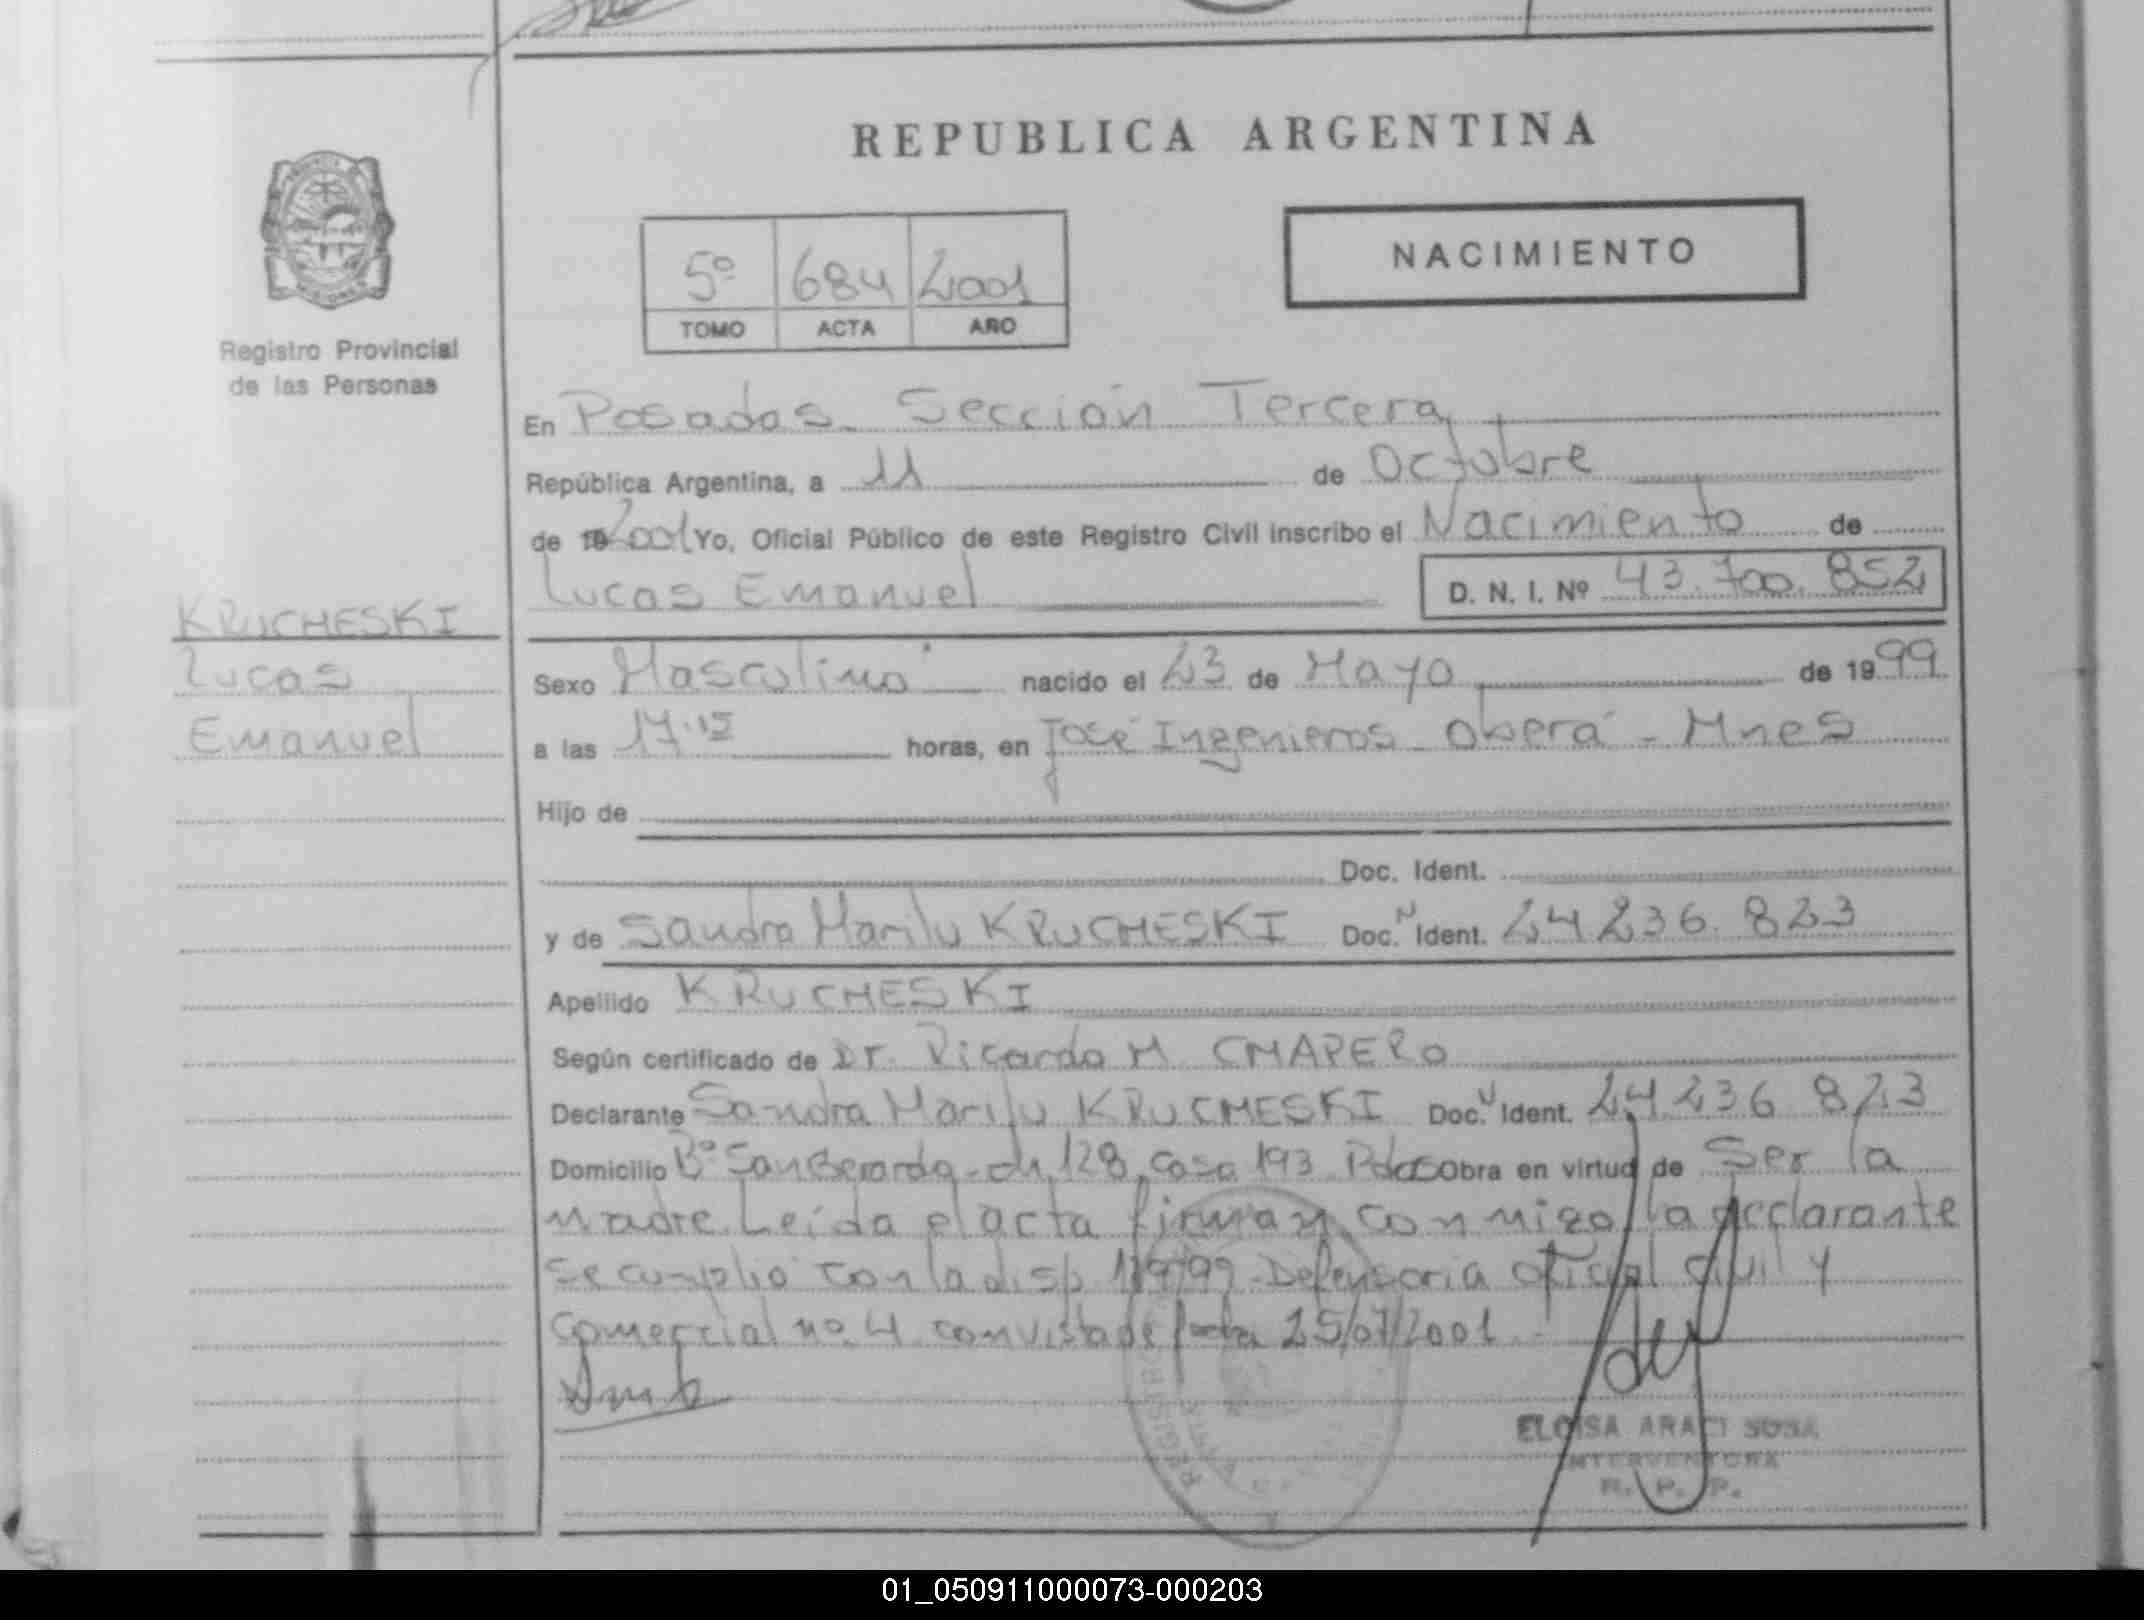 REPUBLICA ARGENTINA
NACIMIENTO
5º 684 2001
TOMO ACTA AÑO
PROVINCIA
MISIONES
Registro Provincial
de las Personas
En Posadas. Sección Tercera
República Argentina, a 11 de Octubre
de 19 2001 Yo, Oficial Público de este Registro Civil inscribo el Nacimiento de
Lucas Emanuel D. N. I. Nº 43.700.852
KRUCHESKI
Lucas
Emanuel
Sexo Masculino nacido el 23 de Mayo de 1999
a las 17.15 horas, en José Ingenieros - Oberá - Mnes
Hijo de
Doc. Ident.
y de Sandra Marilu KRUCHESKI Doc. N Ident. 24 236. 823
Apellido KRUCHESKI
Según certificado de Dr. Ricardo M. CHAPERO
Declarante Sandra Marilu KRUCHESKI Doc. N Ident. 24 236 823
Domicilio Bº San Gerardo - ch 128, casa 193 Pdas Obra en virtud de Ser la
madre. Leída el acta firman conmigo la declarante
se cumplió con la disp 119/99. Defensoria oficial civil y
comercial no. 4 con vista de fecha 25/07/2001.-
ELOISA ARACI SOSA
INTERVENTORA
R. P. P.
01_050911000073-000203